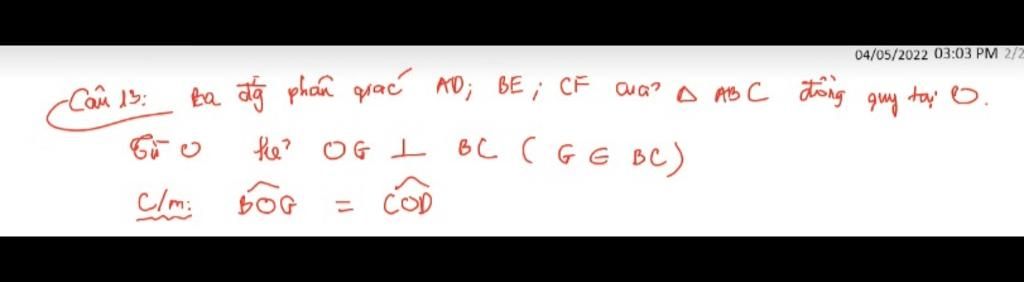 04/05/2022 03:03 PM 2/2
Câu 13: Ba đg phân giác AD; BE; CF của △ ABC đồng quy tại O.
Từ O kẻ OG ⊥ BC ( G ∈ BC)
C/m: BOG = COD